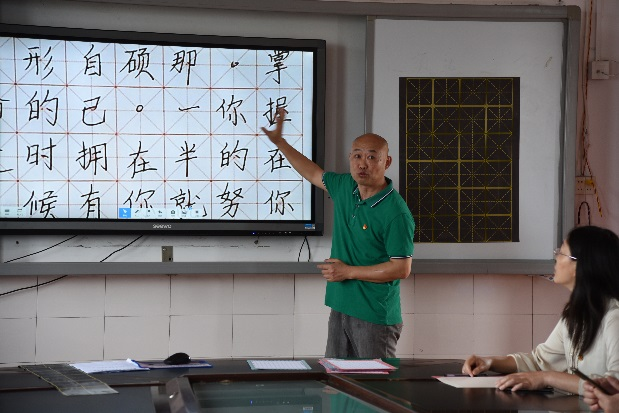 掌握在你
。你的努
那一半就
硕。在你
自己拥有
形的时候